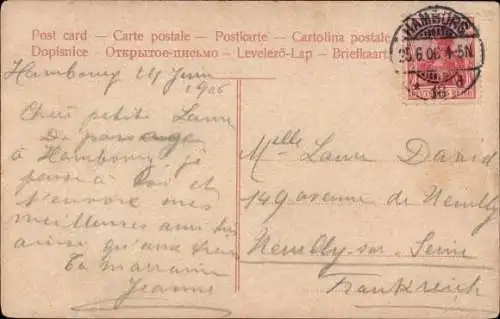 Post card - Carte postale - Postkarte - Cartolina postale
Dopisnice - Открытое-письмо - Levelező-Lap - Briefkaart
HAMBURG
25.6.06. 4-5N
* 16
Hambourg 24 Juin
1906
Chère petite Laure
De passage
à Hambourg je
pense à toi et
t'envoie mes
meilleures
ainsi qu'aux
Ta marraine
Jeanne
Melle Laure David
149 avenue de Neuilly
Neuilly-sur-Seine
Frankreich